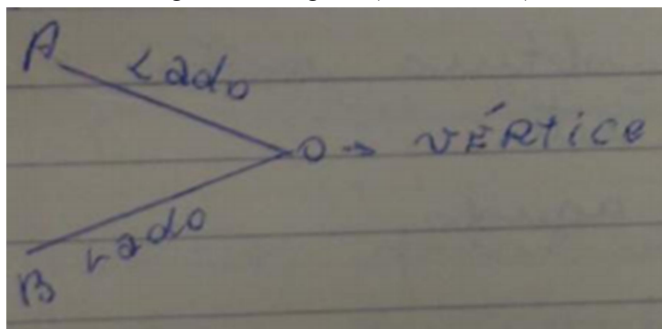 A
Lado
O → VÉRTICE
Lado
B